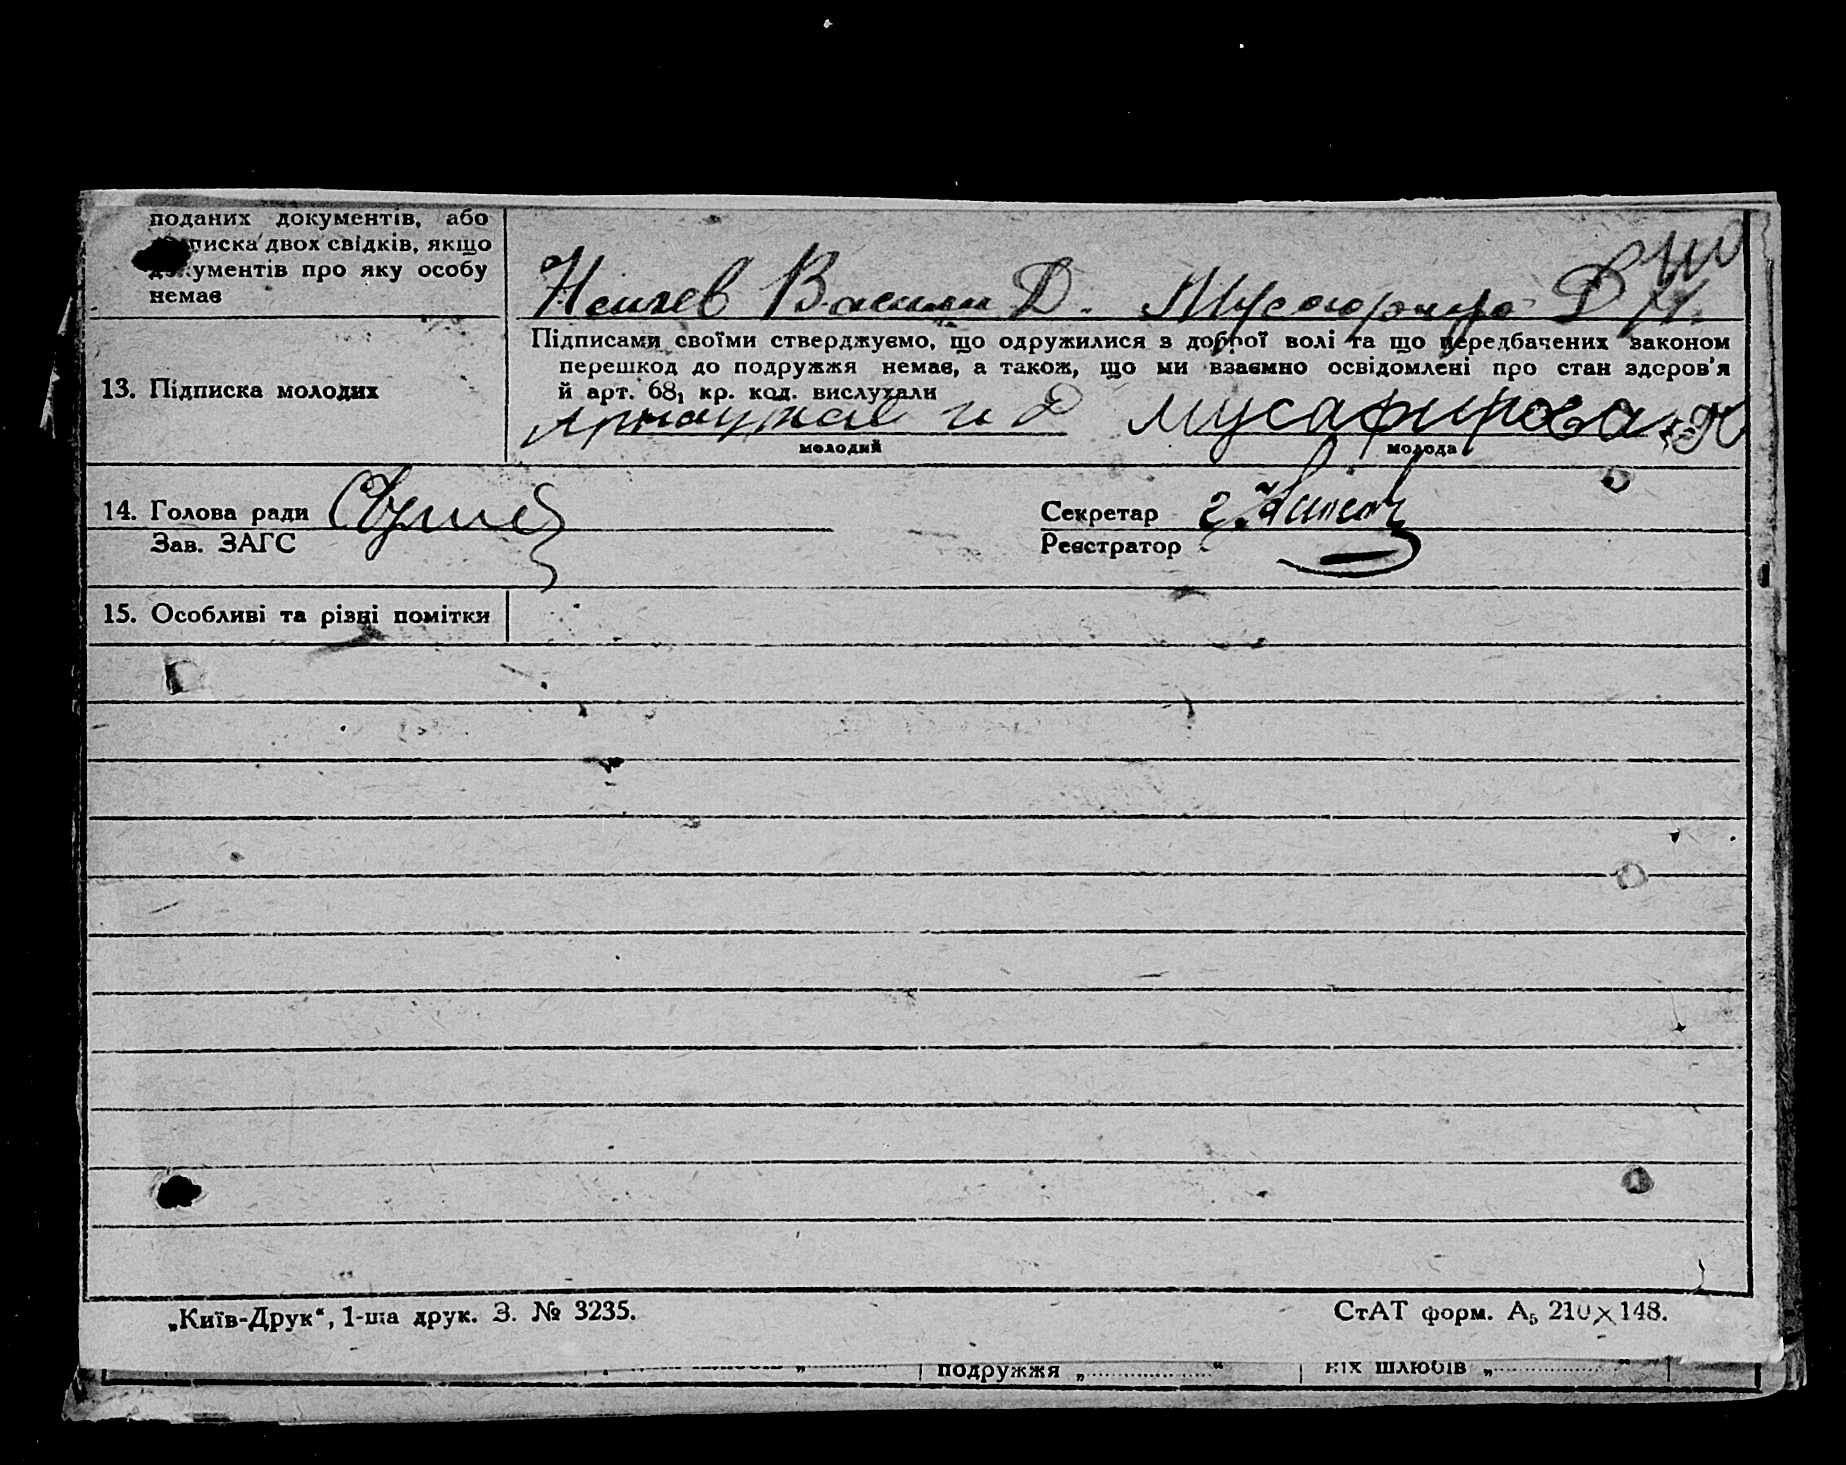 поданих документів, або
писка двох свідків, якщо
документів про яку особу
немає
Васили Д. Д
Підписами своїми стверджуємо, що одружилися з доброї волі та що передбачених законом
перешкод до подружжя немає, а також, що ми взаємно освідомлені про стан здоров'я
13. Підписка молодих
й арт. 68₁ кр. код. вислухали
и Д Мусафирова
молодий молода
14. Голова ради Секретар
Зав. ЗАГС Реєстратор
15. Особливі та різні помітки
„Київ-Друк“, 1-ша друк. З. № 3235. СтАТ форм. А₅ 210×148.
подружжя „ “ них шлюбів „ “